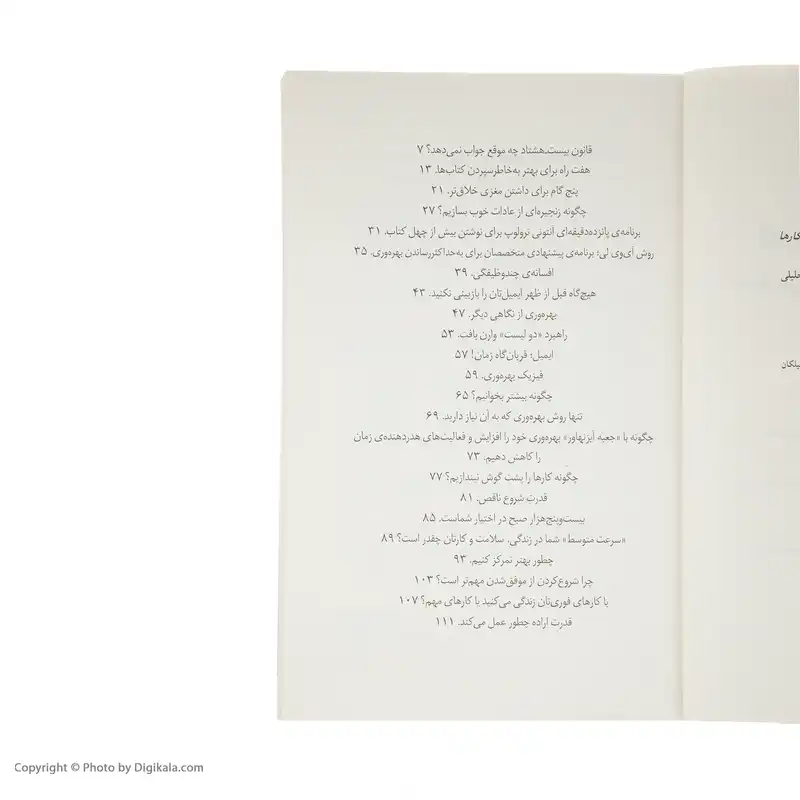 قانون بیست‌هشتاد چه موقع جواب نمی‌دهد؟ ۷
هفت راه برای بهتر به‌خاطرسپردن کتاب‌ها. ۱۳
پنج گام برای داشتن مغزی خلاق‌تر. ۲۱
چگونه زنجیره‌ای از عادات خوب بسازیم؟ ۲۷
برنامه‌ی پانزده‌دقیقه‌ای آنتونی ترولوپ برای نوشتن بیش از چهل کتاب. ۳۱
روش آی‌وی لی؛ برنامه‌ی پیشنهادی متخصصان برای به‌حداکثررساندن بهره‌وری. ۳۵
افسانه‌ی چندوظیفگی. ۳۹
هیچ‌گاه قبل از ظهر ایمیل‌تان را بازبینی نکنید. ۴۳
بهره‌وری از نگاهی دیگر. ۴۷
راهبرد «دو لیست» وارن بافت. ۵۳
ایمیل؛ قربان‌گاه زمان! ۵۷
فیزیک بهره‌وری. ۵۹
چگونه بیشتر بخوانیم؟ ۶۵
تنها روش بهره‌وری که به آن نیاز دارید. ۶۹
چگونه با «جعبه آیزنهاور» بهره‌وری خود را افزایش و فعالیت‌های هدردهنده‌ی زمان
را کاهش دهیم. ۷۳
چگونه کارها را پشت گوش نیندازیم؟ ۷۷
قدرت شروع ناقص. ۸۱
بیست‌وپنج‌هزار صبح در اختیار شماست. ۸۵
«سرعت متوسط» شما در زندگی، سلامت و کارتان چقدر است؟ ۸۹
چطور بهتر تمرکز کنیم. ۹۳
چرا شروع‌کردن از موفق‌شدن مهم‌تر است؟ ۱۰۳
با کارهای فوری‌تان زندگی می‌کنید یا کارهای مهم؟ ۱۰۷
قدرت اراده چطور عمل می‌کند. ۱۱۱
کارها
Copyright © Photo by Digikala.com